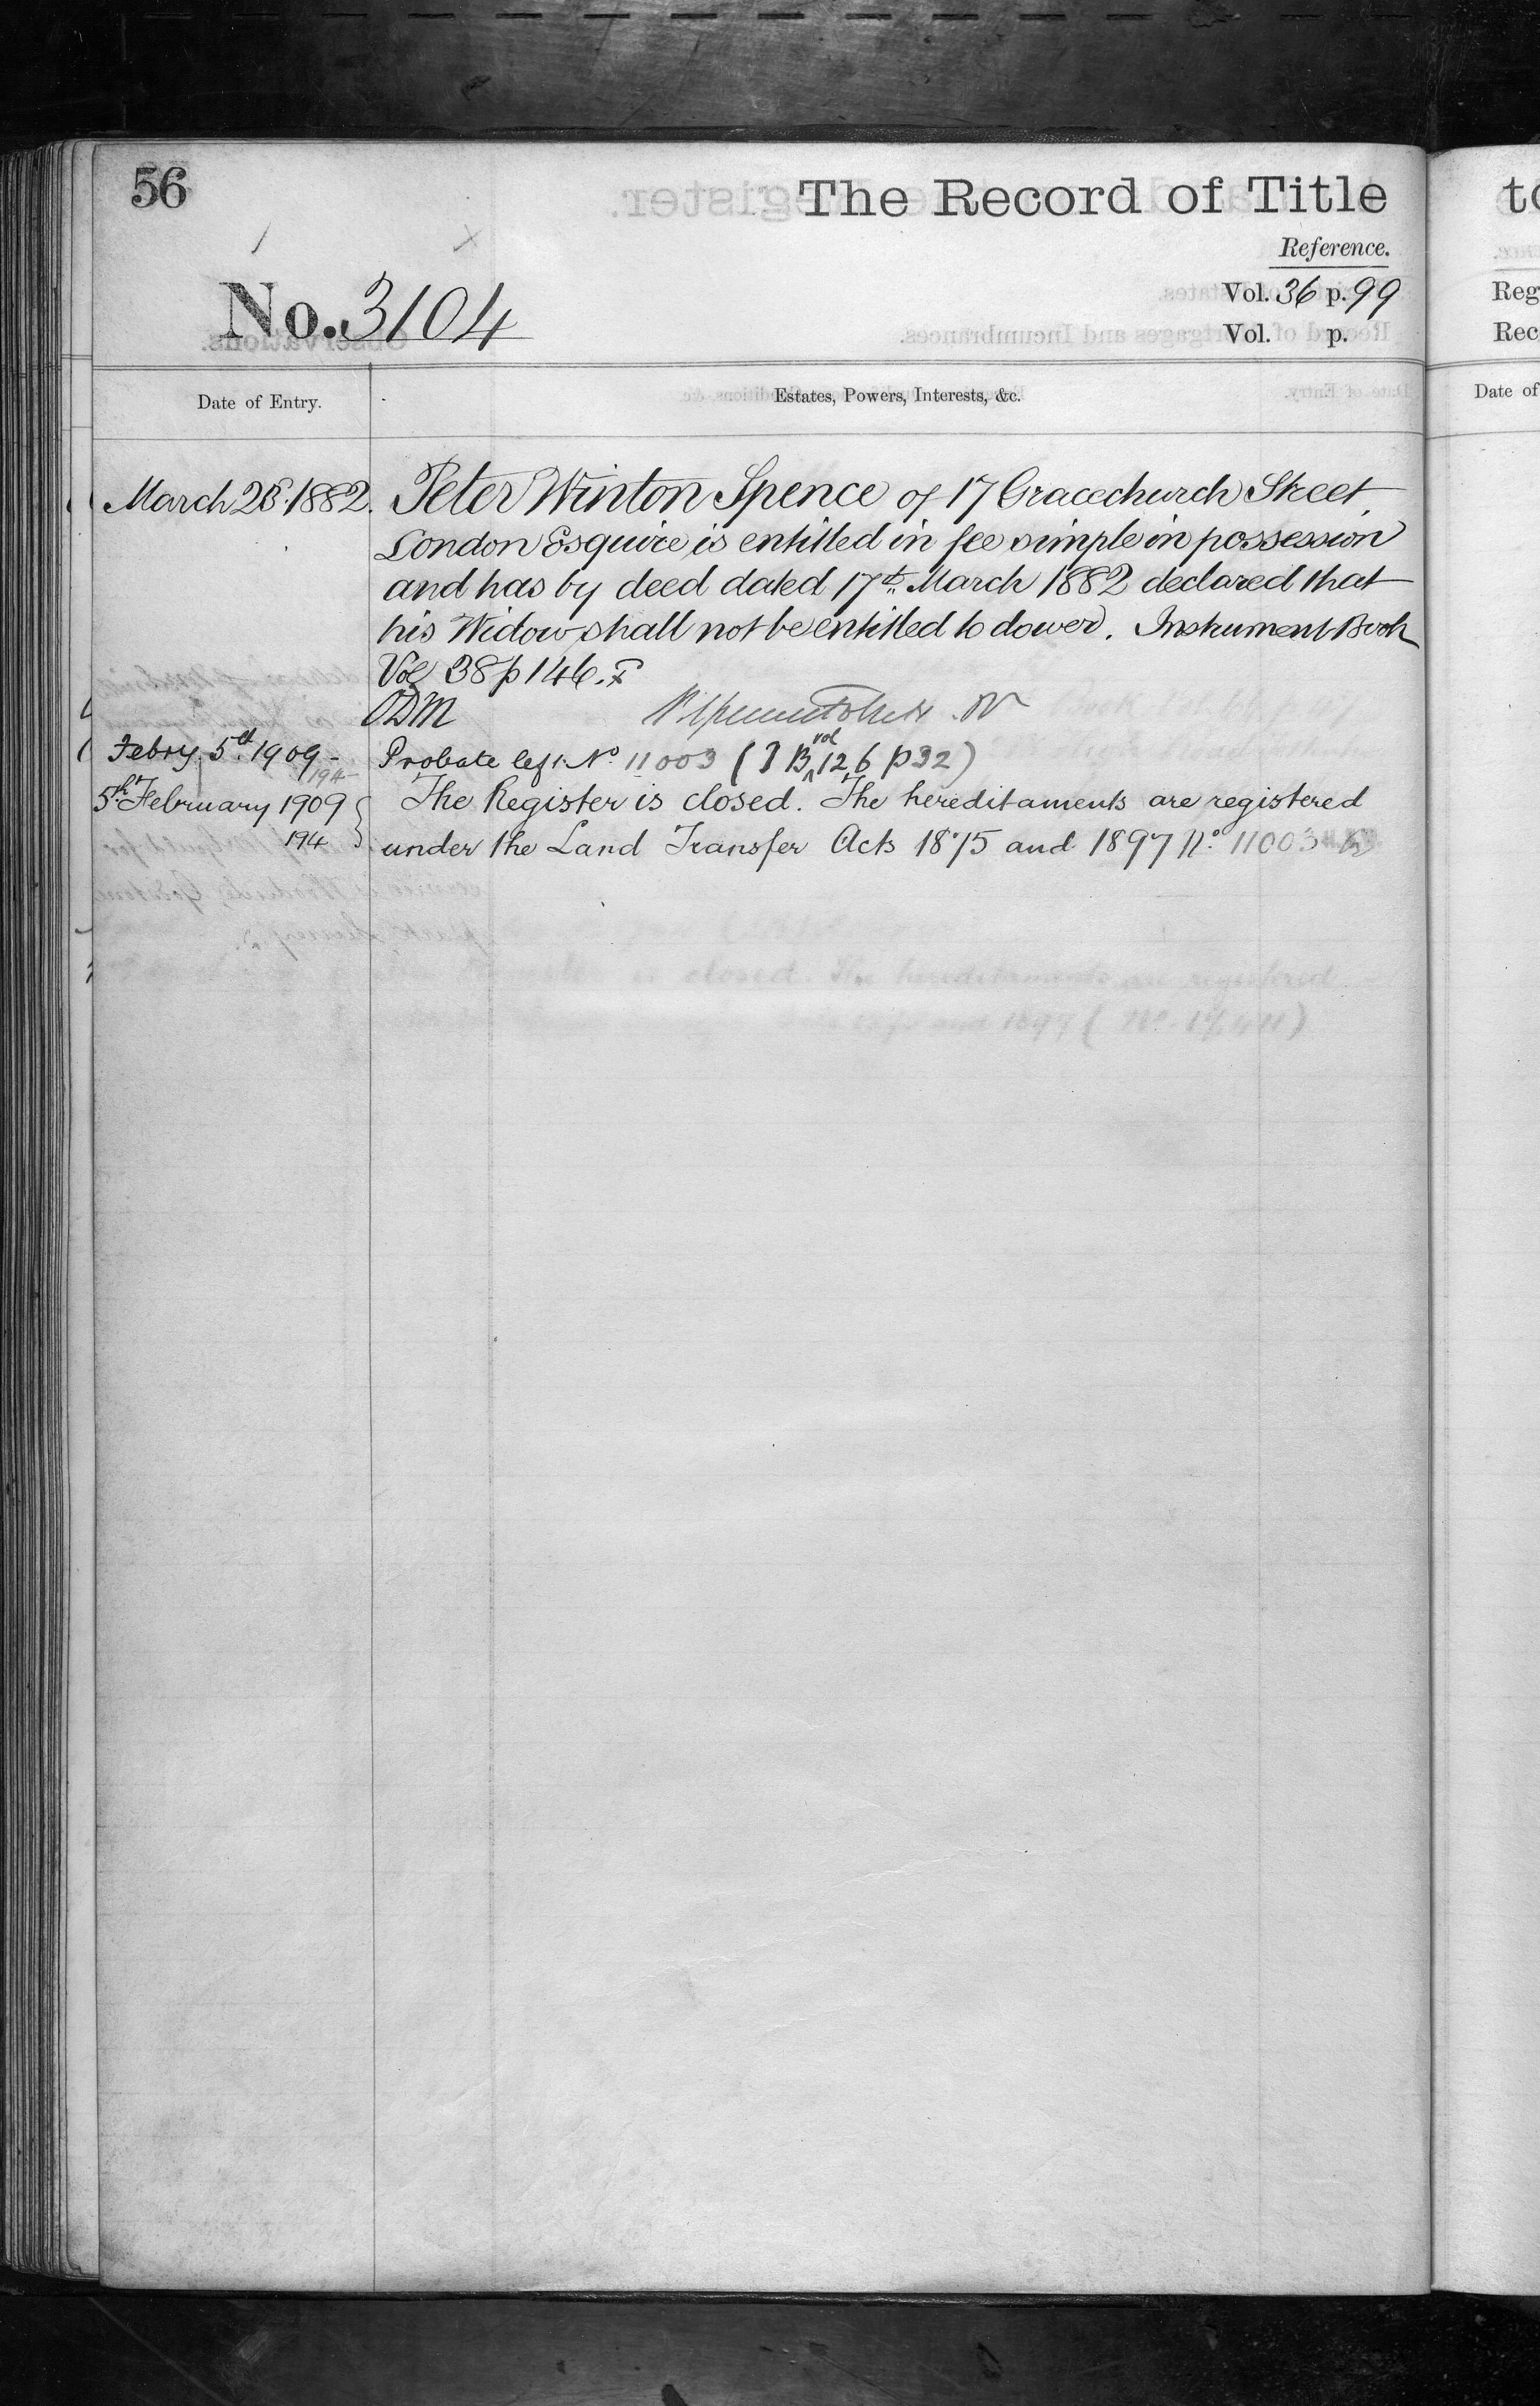 56
The Record of Title
Reference.
No. 3104
Vol. 36 p. 99
Vol. p.
Date of Entry.
Estates, Powers, Interests, &c.
March 28. 1882. Peter Winton Spence of 17 Gracechurch Street
London Esquire is entitled in fee simple in possession
and has by deed dated 17th March 1882 declared that
his Widow shall not be entitled to dower. Instrument Book
Vol 38 p 146.
ODM
Febry. 5th 1909 - Probate left No 11003 (I B vol 126 p 32)
194
5th February 1909 The Register is closed. The hereditaments are registered
194 under the Land Transfer Acts 1875 and 1897 No. 11003
to
Reg
Rec
Date of